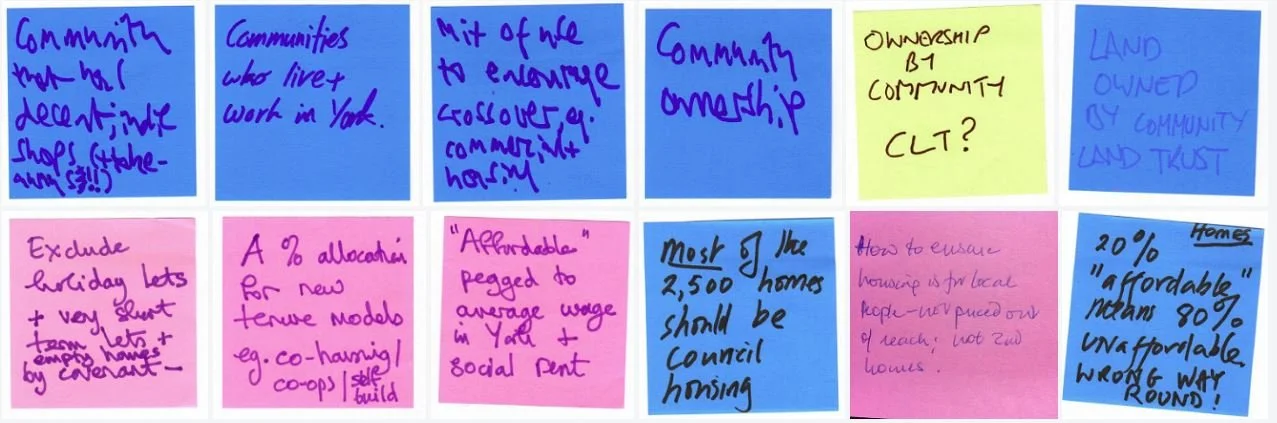 Community
that has
decent, indie
shops (+ take-
aways!!!)
Communities
who live +
work in York.
Mix of use
to encourage
crossover, eg.
commercial +
housing
Community
ownership
OWNERSHIP
BY
COMMUNITY
CLT?
LAND
OWNED
BY COMMUNITY
LAND TRUST
Exclude
holiday lets
+ very short
term lets +
empty homes
by covenant —
A % allocation
for new
tenure models
eg. co-housing/
co-ops/self
build
"Affordable"
pegged to
average wage
in York +
social rent
Most of the
2,500 homes
should be
council
housing
How to ensure
housing is for local
people - not priced out
of reach; not 2nd
homes.
Homes
20%
"affordable"
means 80%
unaffordable
WRONG WAY
ROUND!